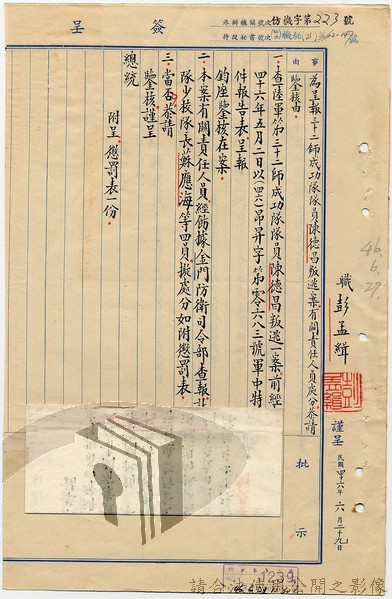 簽 呈
仿機字第223號
事由
為呈報三十二師成功隊隊員陳德昌叛逃案有關責任人員處分恭請
鑒核由
一、查陸軍第三十二師成功隊隊員陳德昌叛逃一案前經
四十六年五月二日以(四六)昂昇字第零六八三號軍中特
件報告表呈報
鈞座鑒核在案
二、本案有關責任人員經飭據金門防衛司令部查報
隊少校隊長蘇應海等四員擬處分如附懲罰表
三、當否恭請
鑒核謹呈
總統
附呈懲罰表一份
職 彭孟緝
謹呈
民國四十六年六月二十九日
批示
46.6.29.
1239
請合法使用公開之影像